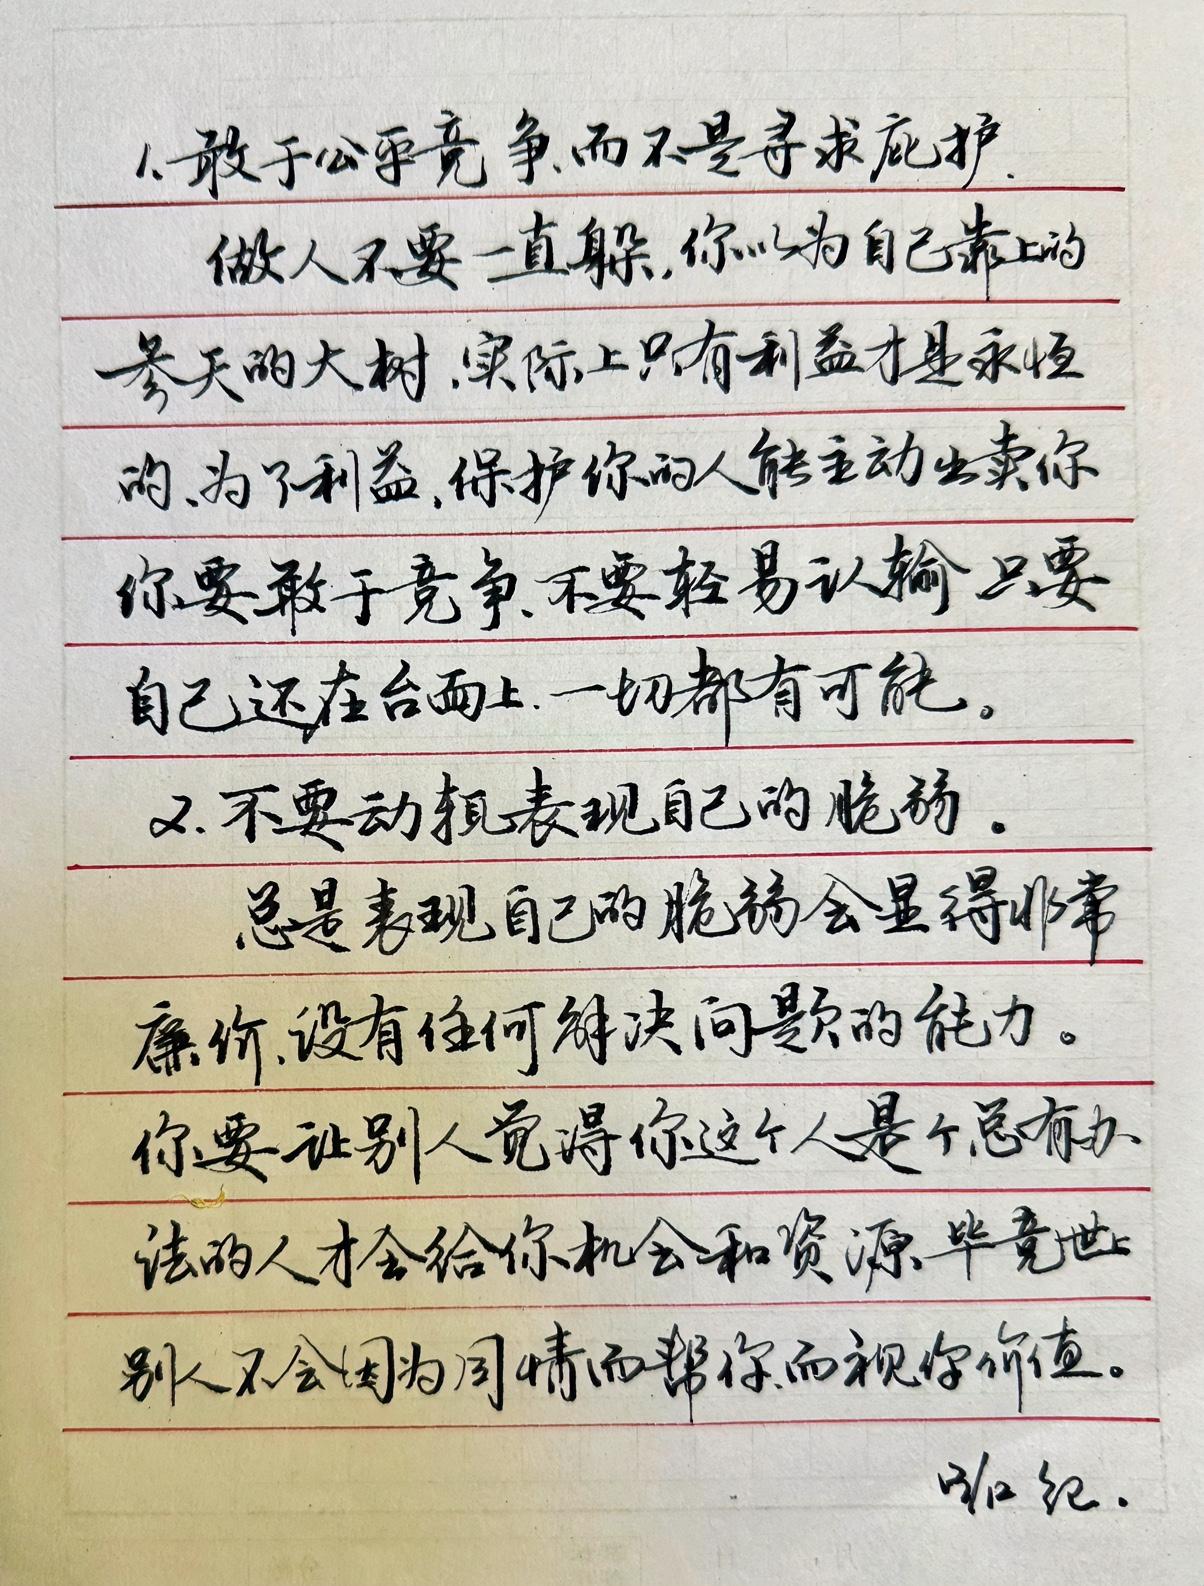 1、敢于公平竞争、而不是寻求庇护.
做人不要一直躲,你以为自己靠上的
参天的大树,实际上只有利益才是永恒
的、为了利益,保护你的人能主动出卖你
你要敢于竞争、不要轻易认输只要
自己还在台面上.一切都有可能。
2.不要动辄表现自己的脆弱。
总是表现自己的脆弱会显得非常
廉价、没有任何解决问题的能力。
你要让别人觉得你这个人是个总有办
法的人才会给你机会和资源、毕竟世上
别人不会因为同情而帮你、而视你价值。
纪.